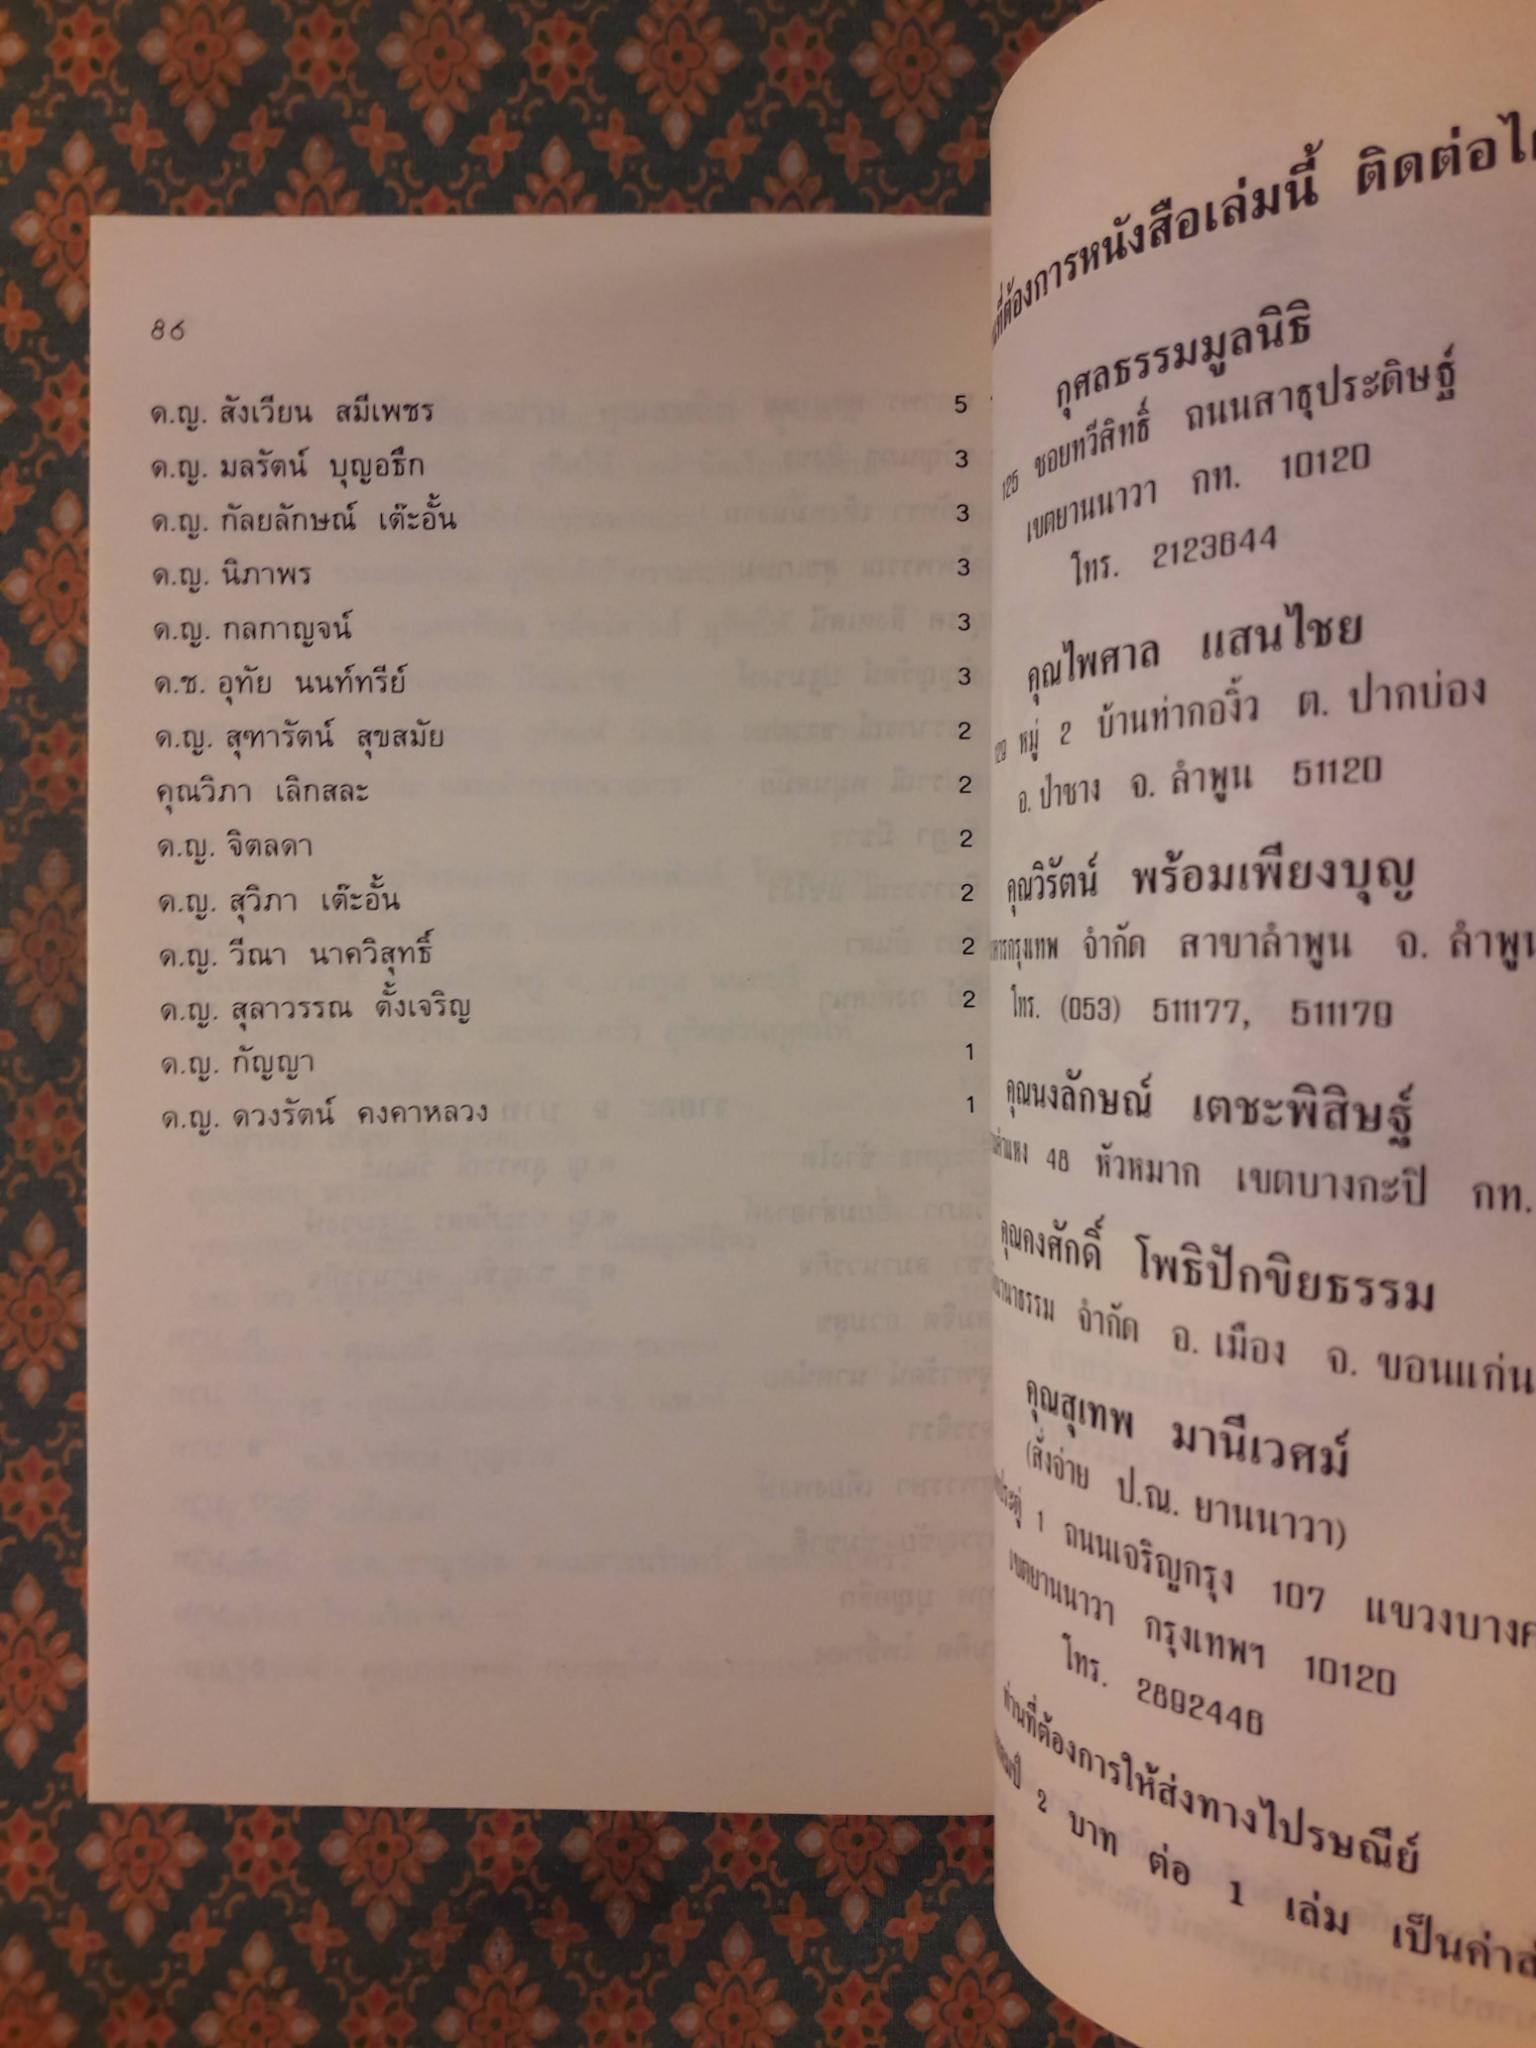 86
ด.ญ. สังเวียน สมีเพชร 5
ด.ญ. มลรัตน์ บุญอธึก 3
ด.ญ. กัลยลักษณ์ เต๊ะอั้น 3
ด.ญ. นิภาพร 3
ด.ญ. กลกาญจน์ 3
ด.ช. อุทัย นนท์ทรีย์ 3
ด.ญ. สุฑารัตน์ สุขสมัย 2
คุณวิภา เลิกสละ 2
ด.ญ. จิตลดา 2
ด.ญ. สุวิภา เต๊ะอั้น 2
ด.ญ. วีณา นาควิสุทธิ์ 2
ด.ญ. สุลาวรรณ ตั้งเจริญ 2
ด.ญ. กัญญา 1
ด.ญ. ดวงรัตน์ คงคาหลวง 1
ที่ต้องการหนังสือเล่มนี้ ติดต่อ
กุศลธรรมมูลนิธิ
125 ซอยทวีสิทธิ์ ถนนสาธุประดิษฐ์
เขตยานนาวา กท. 10120
โทร. 2123644
คุณไพศาล แสนไชย
หมู่ 2 บ้านท่ากองิ้ว ต. ปากบ่อง
อ. ป่าซาง จ. ลำพูน 51120
คุณวิรัตน์ พร้อมเพียงบุญ
กรุงเทพ จำกัด สาขาลำพูน จ. ลำพูน
โทร. (053) 511177, 511179
คุณนงลักษณ์ เตชะพิสิษฐ์
48 หัวหมาก เขตบางกะปิ กท.
คุณคงศักดิ์ โพธิปักขิยธรรม
จำกัด อ. เมือง จ. ขอนแก่น
คุณสุเทพ มานีเวศม์
(สั่งจ่าย ป.ณ. ยานนาวา)
1 ถนนเจริญกรุง 107
เขตยานนาวา กรุงเทพฯ 10120
โทร. 2892446
ท่านที่ต้องการให้ส่งทางไปรษณีย์
2 บาท ต่อ 1 เล่ม เป็นค่า